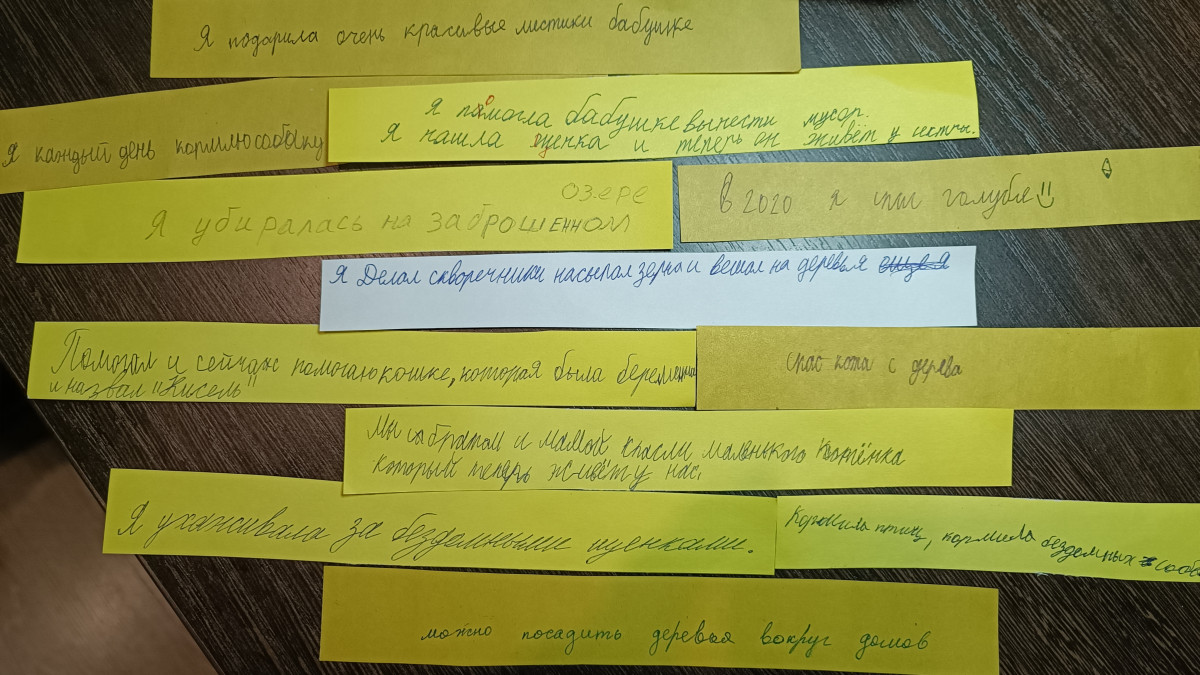 Я подарила очень красивые листики бабушке
Я помогла бабушке вынести мусор.
Я нашла щенка и теперь он живёт у сестры.
Я каждый день кормлю собаку
озере
Я убиралась на заброшенном
В 2020 я спас голубя
Я Делал скворечники насыпал зерна и вешал на деревья
Помогал и сейчас помогаю кошке, которая была беременна
и назвал "Кисель"
спас кота с дерева
Мы с братом и мамой спасли маленького котёнка
который теперь живёт у нас.
Я ухаживала за бездомными щенками.
Кормила птиц, кормила бездомных
можно посадить деревья вокруг домов